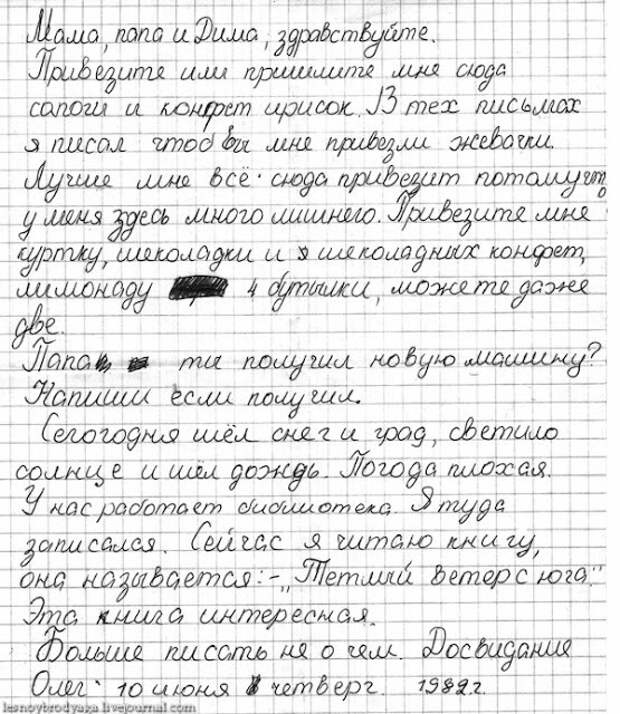 Мама, папа и Дима, здравствуйте.
Привезите или пришлите мне сюда
сапоги и конфет ирисок. В тех письмах
я писал чтоб вы мне привезли жевачки.
Лучше мне всё сюда привезит потомучто
у меня здесь много лишнего. Привезите мне
куртку, шеколадки и шеколадных конфет,
лимонаду 4 бутылки, можете даже
две.
Папа ты получил новую машину?
Напиши если получил.
Сегогодня шёл снег и град, светило
солнце и шёл дождь. Погода плохая.
У нас работает библиотека. Я туда
записался. Сейчас я читаю книгу,
она называется:-„Тетлый ветер с юга."
Эта книга интересная.
Больше писать не о чем. Досвидание
Олег. 10 июня четверг. 1982 г.
lesnoybrodyaga.livejournal.com